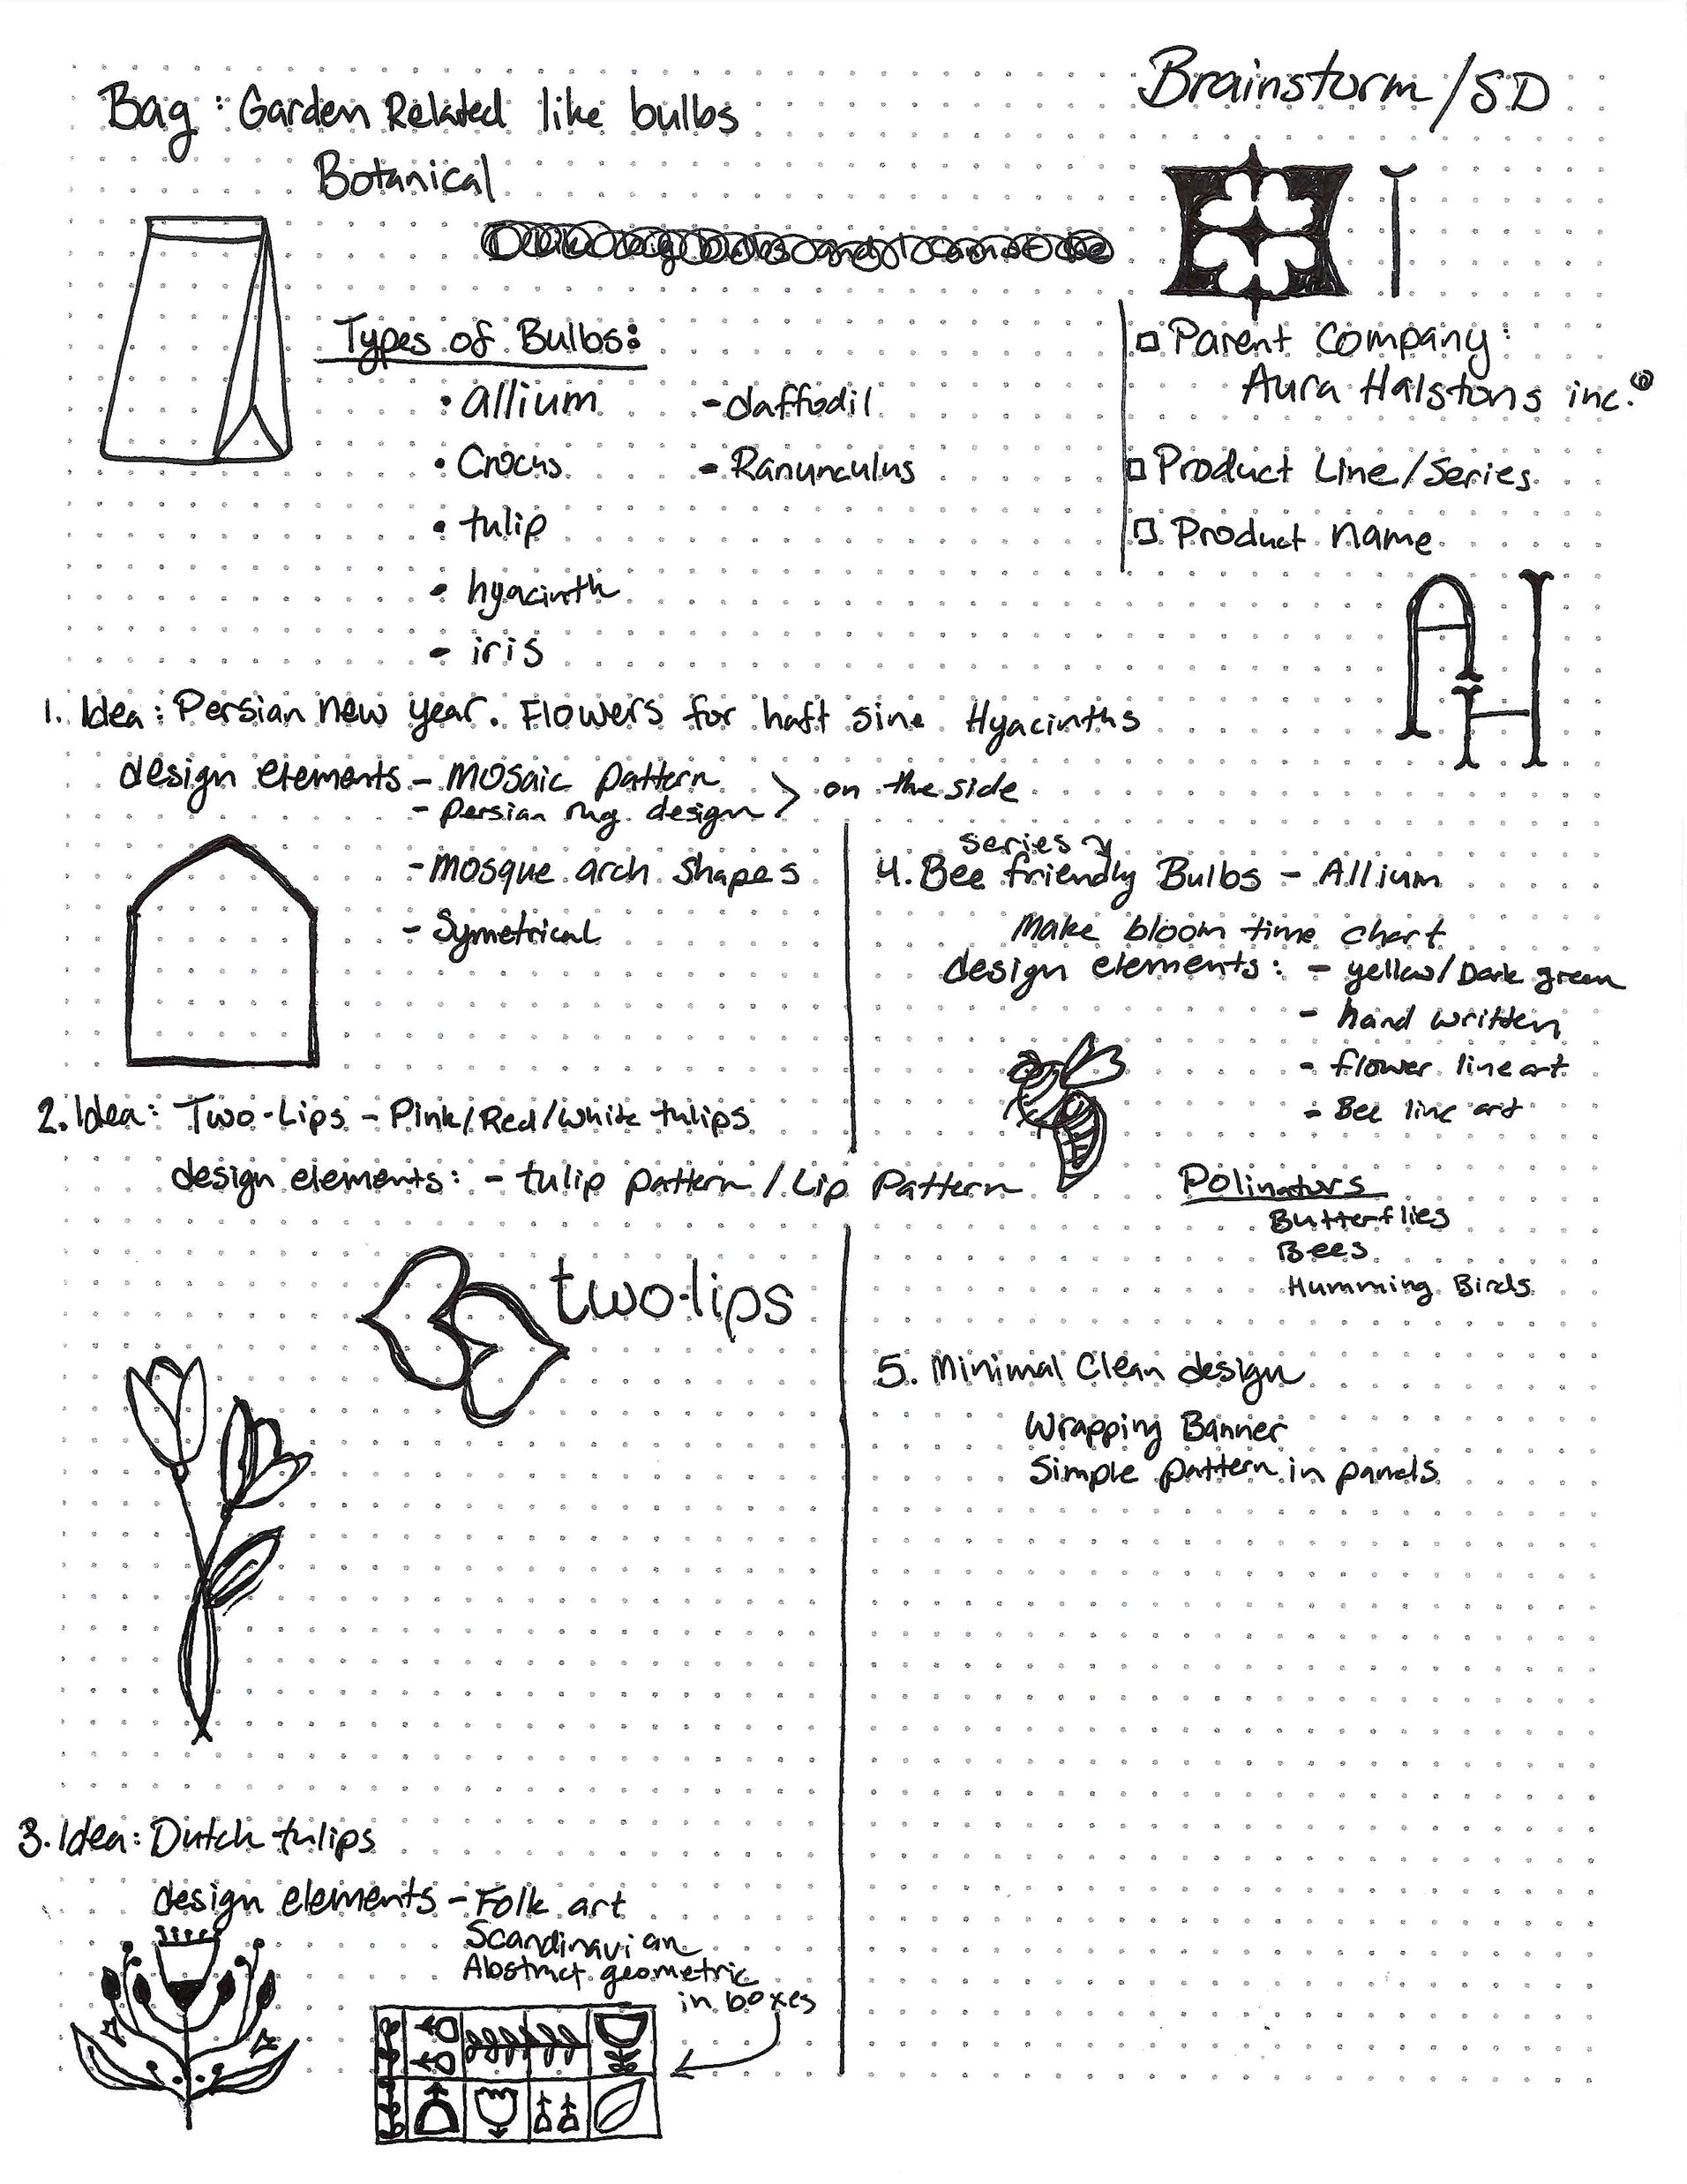 Brainstorm/SD
Bag: Garden Related like bulbs
Botanical
Types of Bulbs:
• allium
• Crocus
• tulip
• hyacinth
- iris
- daffodil
- Ranunculus
Parent Company:
Aura Halstons inc.®
Product Line/Series
Product name
AH
1. Idea: Persian new year. Flowers for haft sine Hyacinths
design elements - Mosaic pattern
- Persian rug design
> on the side
- Mosque arch shapes
- Symetrical
2. Idea: Two-Lips - Pink/Red/White tulips
design elements: - tulip pattern / Lip Pattern
two-lips
3. Idea: Dutch tulips
design elements - Folk art
Scandinavian
Abstract geometric
in boxes
series
4. Bee friendly Bulbs - Allium
Make bloom time chart
design elements: - yellow/Dark green
- hand written
- flower line art
- Bee line art
Polinators
Butterflies
Bees
Humming Birds
5. Minimal Clean design
Wrapping Banner
Simple pattern in panels